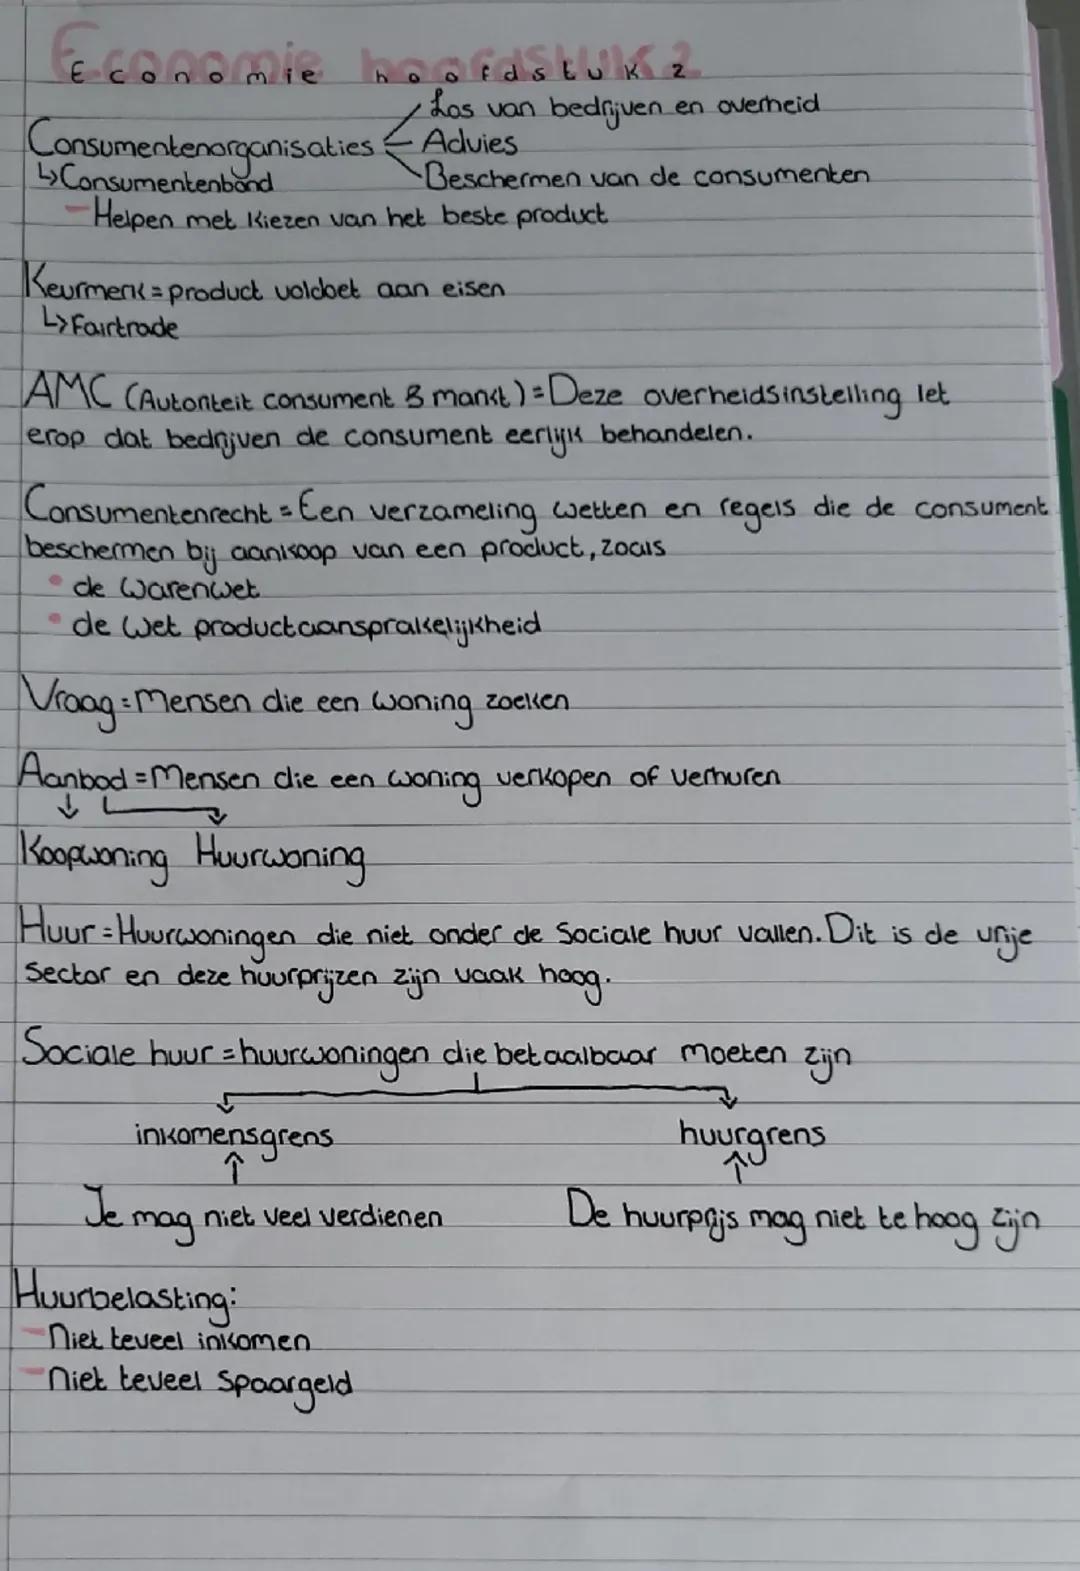 Economie hoofdstuk 2
Los van bedrijven en overheid
Consumentenorganisaties Advies
↳Consumentenbond Beschermen van de consumenten
- Helpen met kiezen van het beste product
Keurmerk = product voldoet aan eisen
↳Fairtrade
AMC (Autoriteit consument & markt) = Deze overheidsinstelling let
erop dat bedrijven de consument eerlijk behandelen.
Consumentenrecht = Een verzameling wetten en regels die de consument
beschermen bij aankoop van een product, zoals
• de Warenwet
• de Wet productaansprakelijkheid
Vraag = Mensen die een woning zoeken
Aanbod = Mensen die een woning verkopen of verhuren
Koopwoning Huurwoning
Huur = Huurwoningen die niet onder de Sociale huur vallen. Dit is de vrije
Sector en deze huurprijzen zijn vaak hoog.
Sociale huur = huurwoningen die betaalbaar moeten zijn
inkomensgrens huurgrens
Je mag niet veel verdienen De huurprijs mag niet te hoog zijn
Huurbelasting:
- Niet teveel inkomen
- Niet teveel Spaargeld